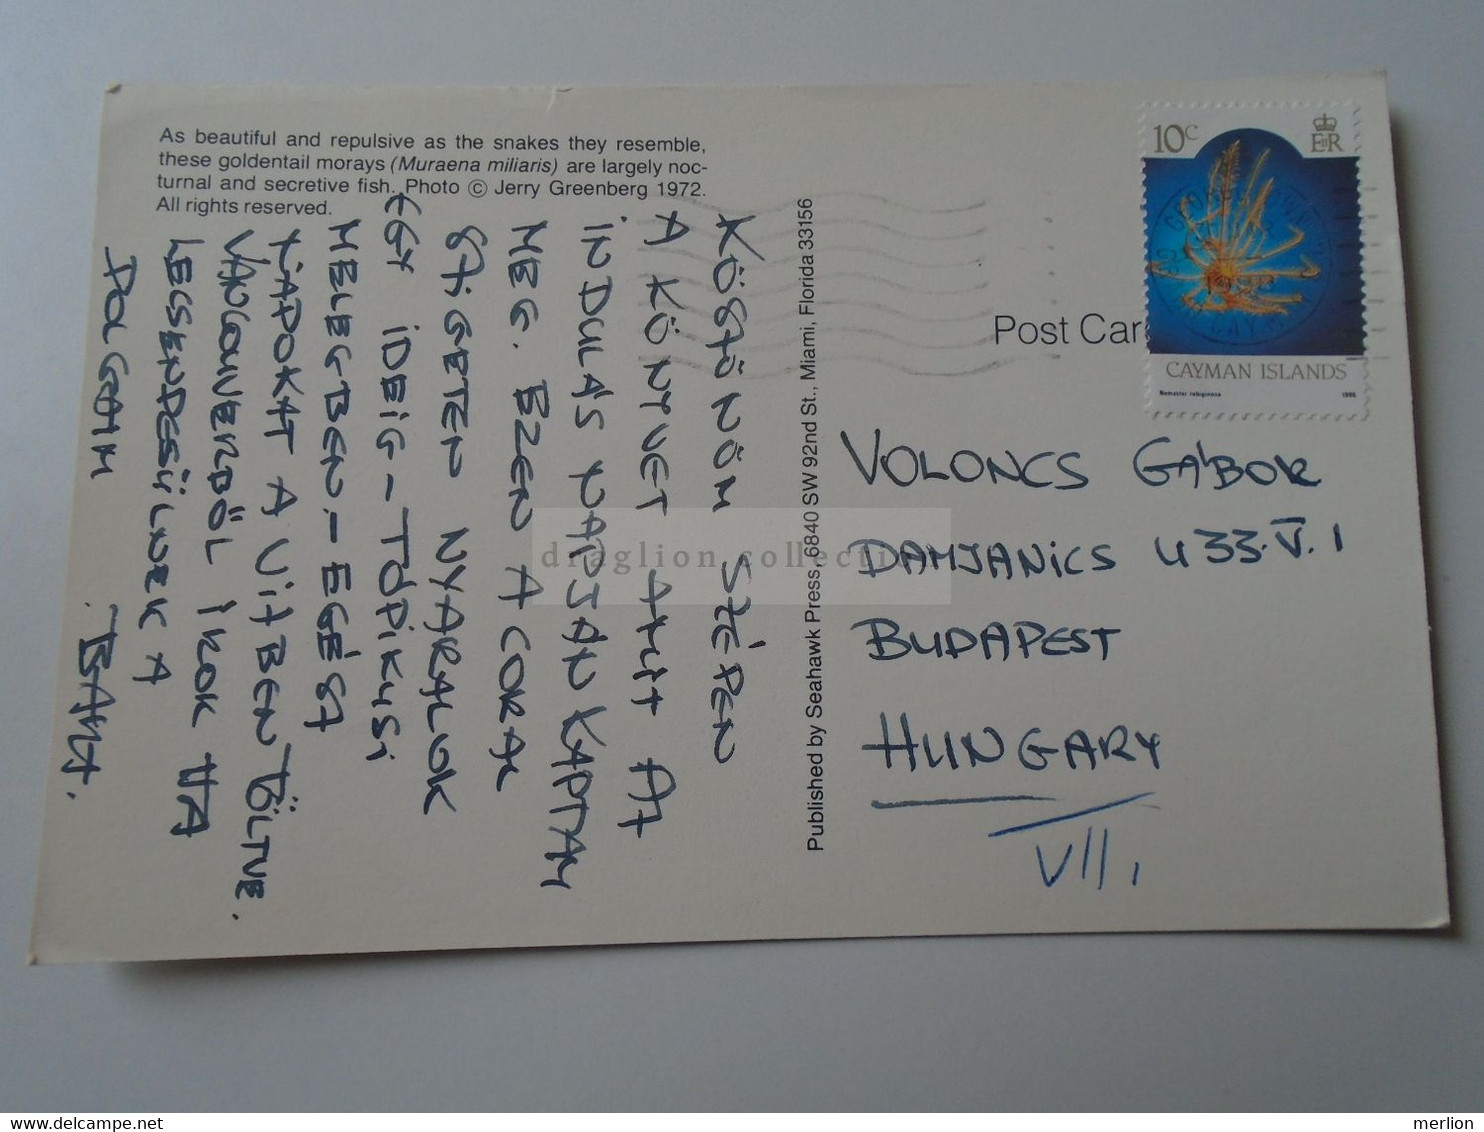 As beautiful and repulsive as the snakes they resemble,
these goldentail morays (Muraena miliaris) are largely noc-
turnal and secretive fish. Photo © Jerry Greenberg 1972.
All rights reserved.
KÖSZÖNÖM SZÉPEN
A KÖNYVET AMIT AZ
INDULÁS NAPJÁN KAPTAM
MEG. EZEN A CORAL
SZIGETEN NYARALOK
EGY IDEIG - TÓPIKUSI
MELEGBEN. - EGÉSZ
NAPOKAT A VÍZBEN TÖLTVE.
VANCOUVERBÖL IROK HA
LECSENDESÜLNEK A
DOLGAIM
Published by Seahawk Press, 6840 SW 92nd St., Miami, Florida 33156
Post Car
10c
EIIR
CAYMAN ISLANDS
Nemaster rubiginosa 1986
VOLONCS GÁBOR
DAMJANICS U 33. V. 1
BUDAPEST
HUNGARY
VII,
draglion collecti
merlion